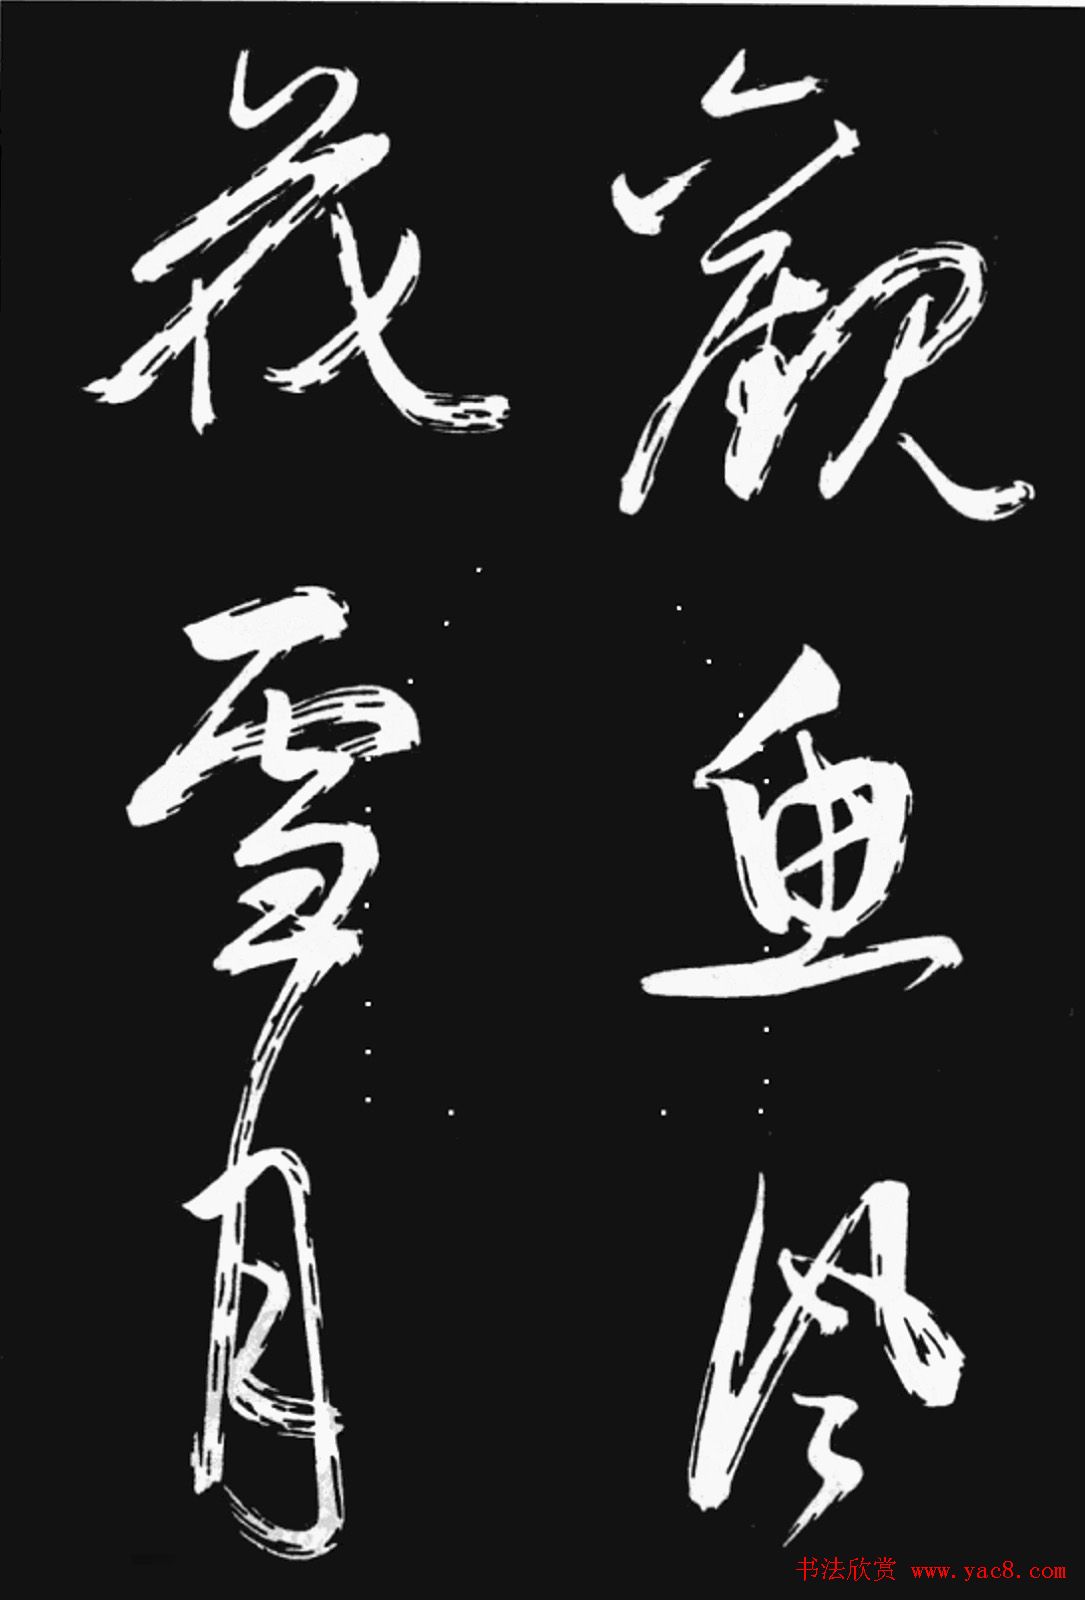 觀魚风
花雪月
书法欣赏 www.yac8.com